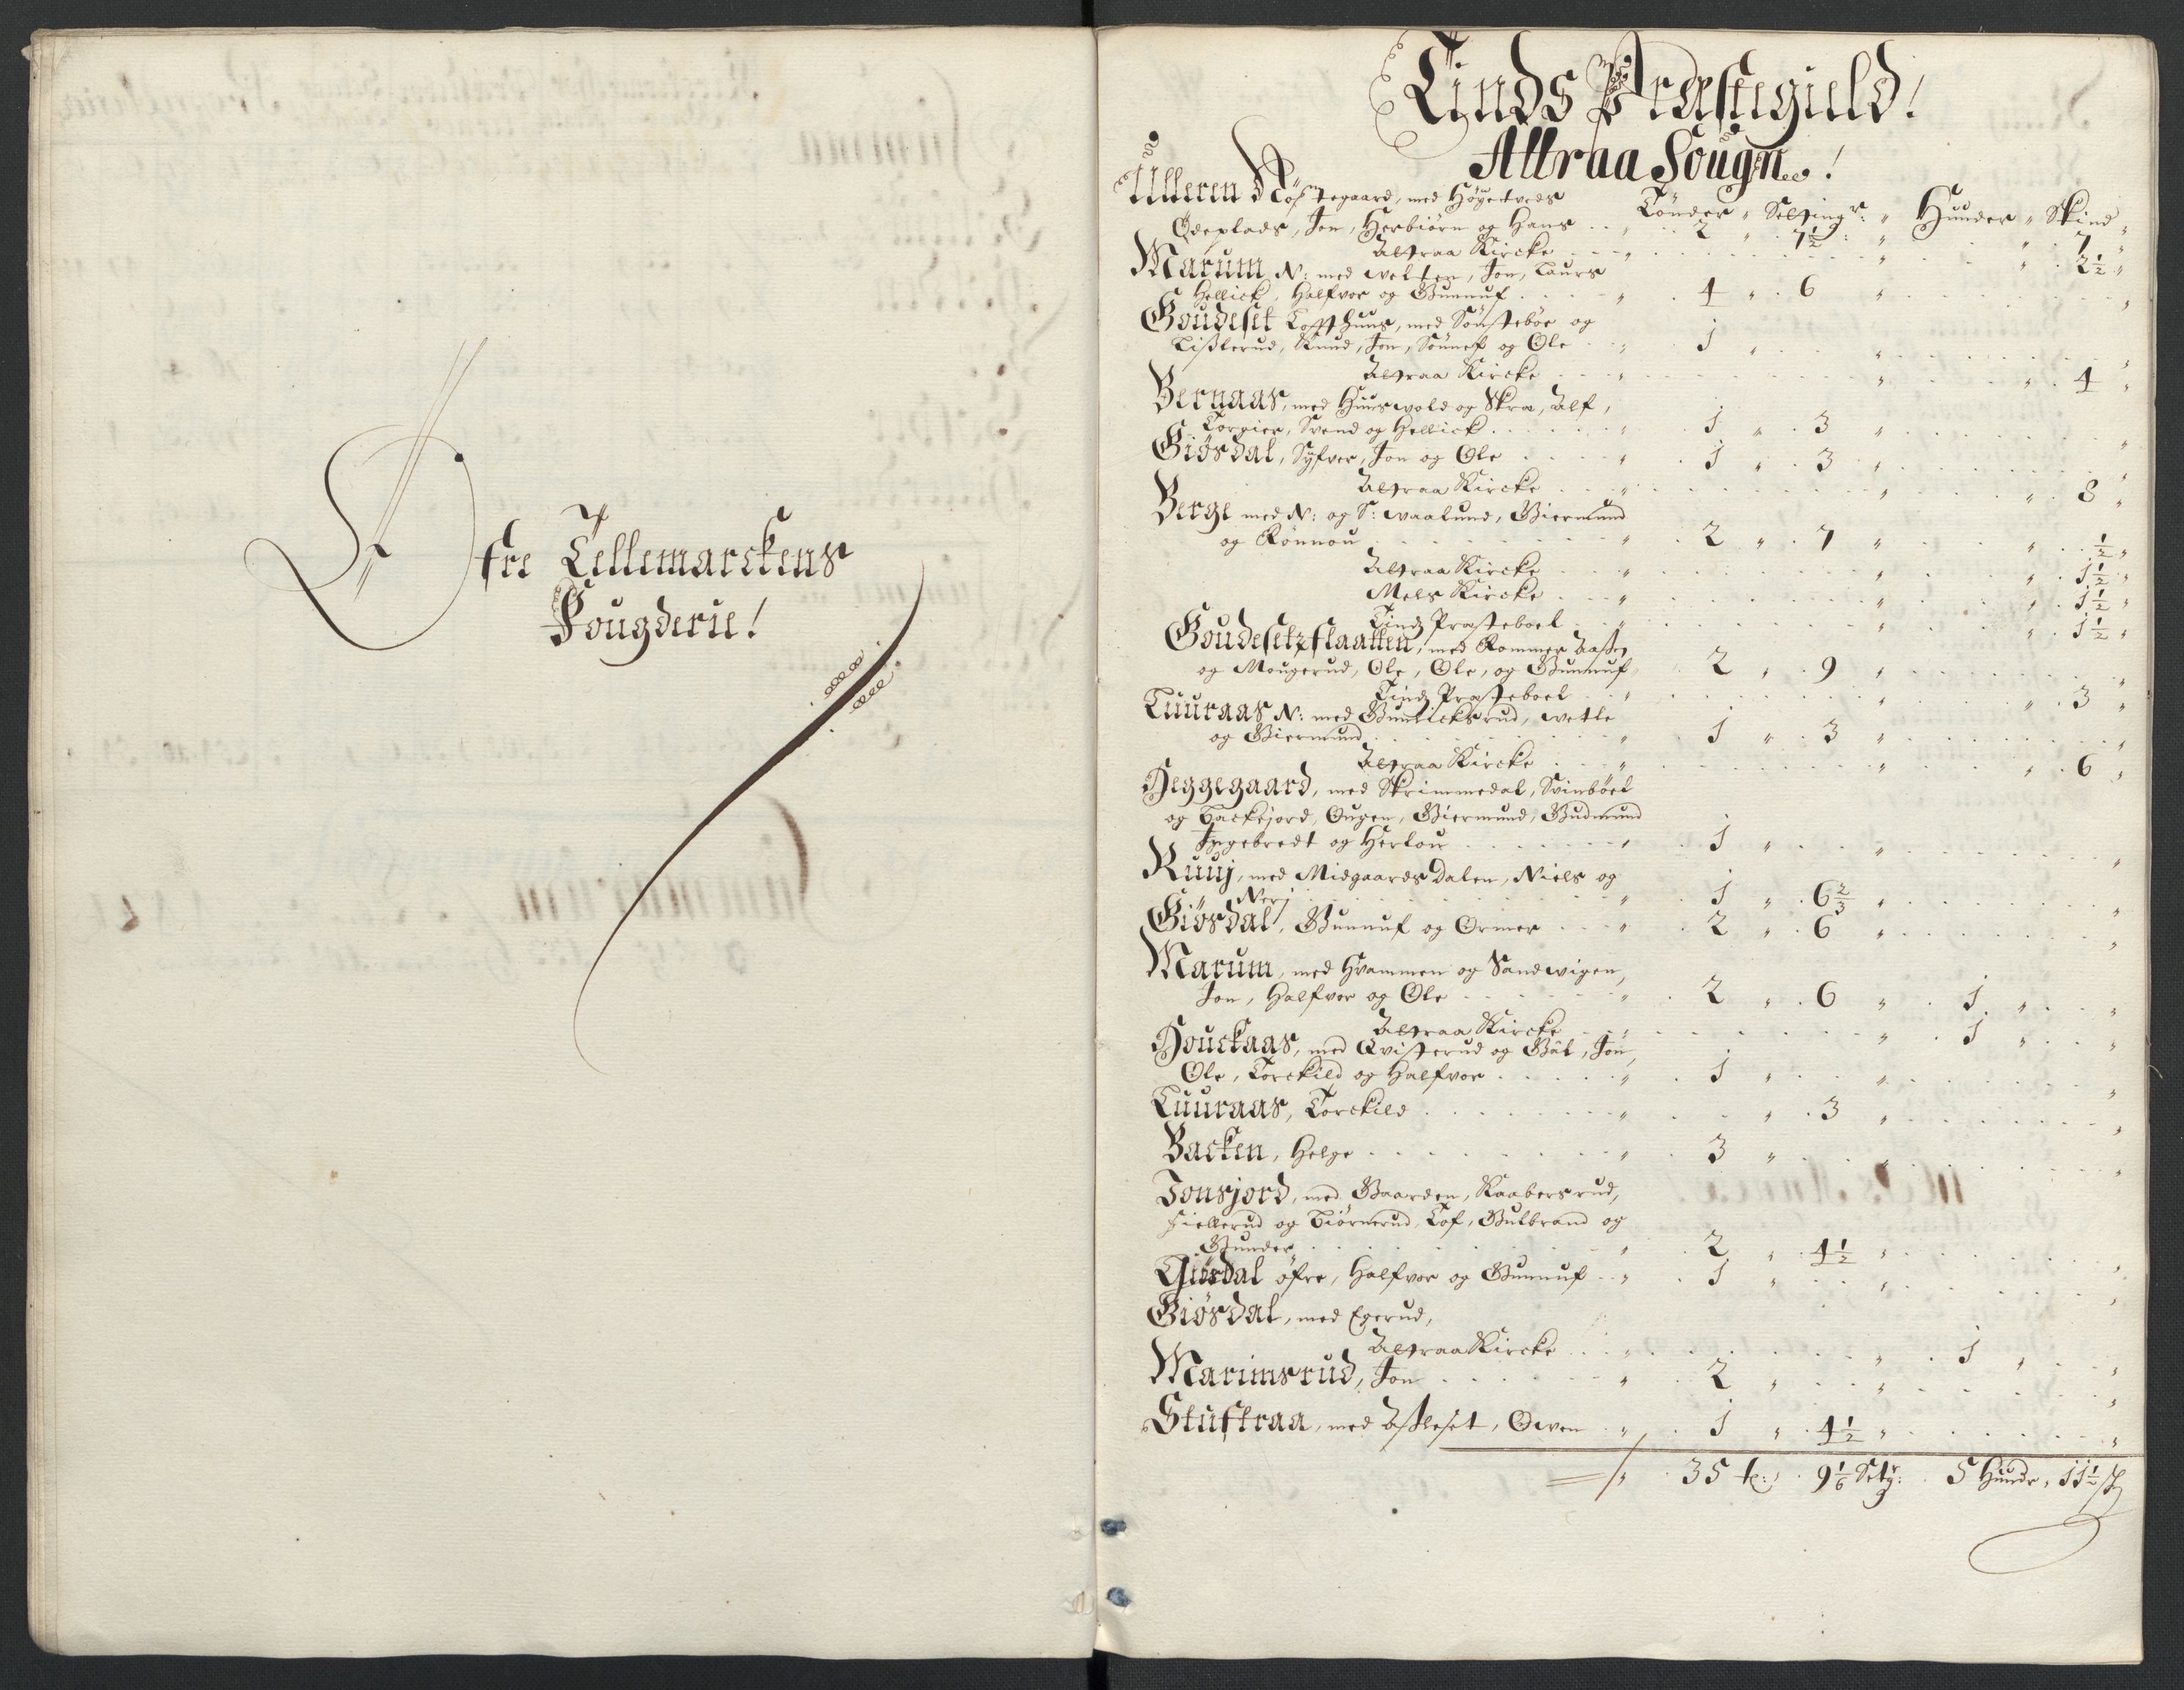 Øfre Tellemarckens
Fougderie!
Tinds Præstegield!
Attraa Sougn!
Tønder " Setting " Hunder " Skind "
Ulleren Røstegaard, med Høgetveds
Ødeplads, Jon, Herbiørn og Hans . . " . 2 " . 7½ " . . " . 7 "
Attraa Kircke . . " . . " . . " . 2½ "
Marum N: med Wetten, Jon, Laurs
Hellick, Halfvor og Gunnuf . . . " . 4 " . 6 " . . "
Goudeset Loffthuus, med Sønstebøe og
Lisslerud, Knud, Jon, Sønnef og Ole . . " 1 " . . " . . "
Attraa Kircke . . " . . " . . " . 4 "
Bernaas, med Huuswold og Skra, Alf,
Torgier, Svend og Hellick . . . " . 1 " . 3 " . . "
Giøsdal, Syfver, Jon og Ole . . . " . 1 " . 3 " . . "
Attraa Kircke . . " . . " . . " . 8 "
Berge med N: og S: Waalund, Giermund
og Rønnou . . . " . 2 " . 7 " . . " . ½ "
Attraa Kircke . . " . . " . . " . 1½ "
Mels Kircke . . " . . " . . " . 1½ "
Tindz Præsteboel . . " . . " . . " . 1½ "
Goudesetzslaatten, med Rommer Aasen
og Mougerud, Ole, Ole, og Gunnuf " . 2 " . 9 " . . "
Tindz Præsteboel . . " . . " . . " . 3 "
Luuraas N: med Gunlicksrud, Wetle
og Giermund . . . " . 1 " . 3 " . . "
Attraa Kircke . . " . . " . . " . 6 "
Heggegaard, med Skrimmedal, Svinbøel
og Backejord, Ougen, Giermund, Gudmund
Ingebredt og Herlou . . . " . 1 " . . " . . "
Ruuj, med Midgaards Dalen, Niels og
Nerj . . . " . 1 " . 6⅔ " . . "
Giøsdal, Gunnuf og Ormer . . . " . 2 " . 6 " . . "
Marum, med Hvammen og Sandwigen,
Jon, Halfvor og Ole . . . " . 2 " . 6 " . 1 " . . "
Attraa Kircke . . " . . " . 1 " . . "
Houckaas, med Qvisterud og Bøl, Jon,
Ole, Torckild og Halfvor . . . " . 1 " . . " . . "
Luuraas, Torckild . . . " . . " . 3 " . . "
Backen, Helge . . . " . 3 " . . " . . "
Jonsjord, med Gaarden, Raabersrud,
Fiellerud og Biørnerud, Tof, Gulbrand og
Gunder . . . " . 2 " . 4½ " . . "
Giøsdal øfre, Halfvor og Gunnuf . . " . 1 " . . " . . "
Giøsdal, med Egerud,
Attraa Kircke . . " . . " . 1 " . . "
Marimsrud, Jon . . . " . 2 " . . " . . "
Stuftraa, med Assleset, Owen . " . 1 " . 4½ " . . "
" 35 t: . 9⅙ Setg: . 5 Hundr . 11½ sk